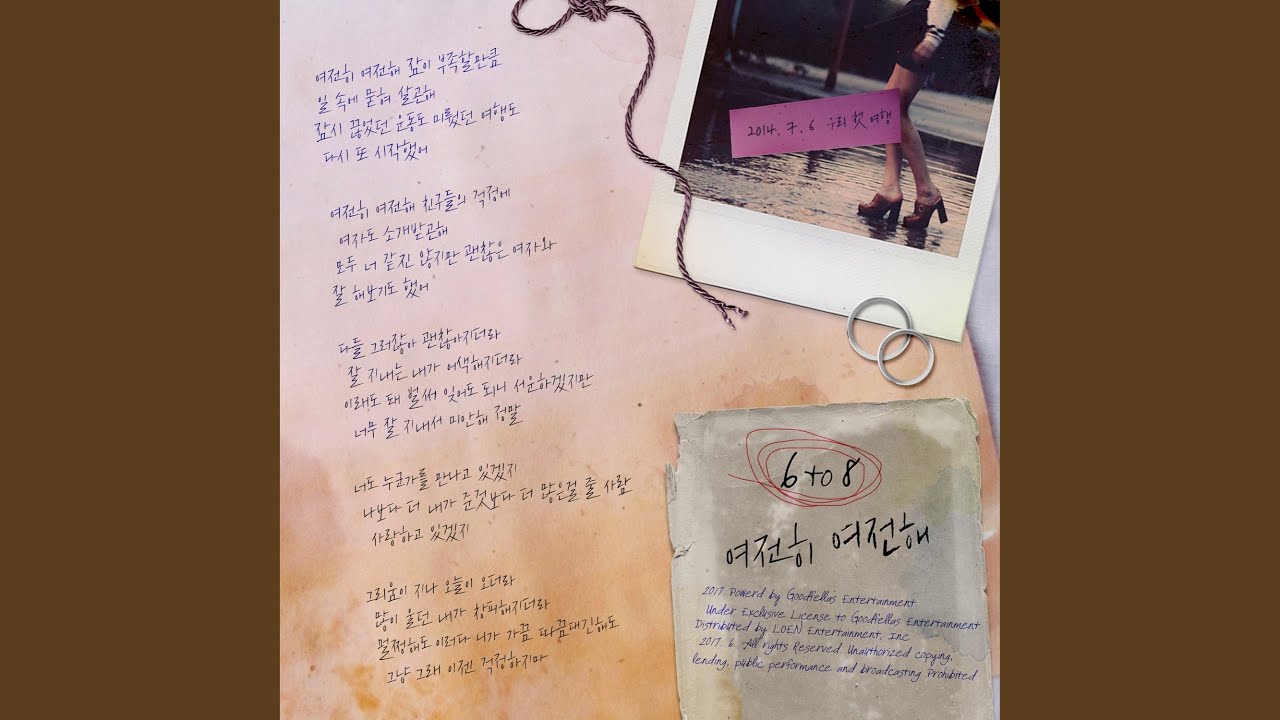 여전히 여전해 잠이 부족할만큼
일 속에 묻혀 살곤해
잠시 끊었던 운동도 미뤘던 여행도
다시 또 시작했어
여전히 여전해 친구들의 걱정에
여자도 소개받곤해
모두 너 같진 않지만 괜찮은 여자와
잘 해보기도 했어
다들 그러잖아 괜찮아지더라
잘 지내는 내가 어색해지더라
이래도 돼 벌써 잊어도 되니 서운하겠지만
너무 잘 지내서 미안해 정말
너도 누군가를 만나고 있겠지
나보다 더 내가 준것보다 더 많은걸 줄 사람
사랑하고 있겠지
그리움이 지나 오늘이 오더라
많이 울던 내가 창피해지더라
멀쩡해도 이러다 니가 가끔 따끔대긴해도
그냥 그래 이젠 걱정하지마
2014. 7. 6 우리 첫 여행
6 to 8
여전히 여전해
2017 Powerd by Goodfellas Entertainment
Under Exclusive License to Goodfellas Entertainment
Distributed by LOEN Entertainment, Inc
2017. 6. All rights Reserved Unauthorized copying,
lending, public performance and broadcasting Prohibited